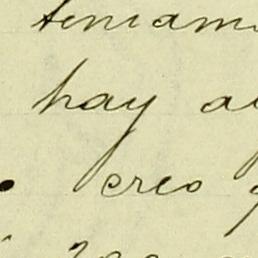 teniam
hay a
creo